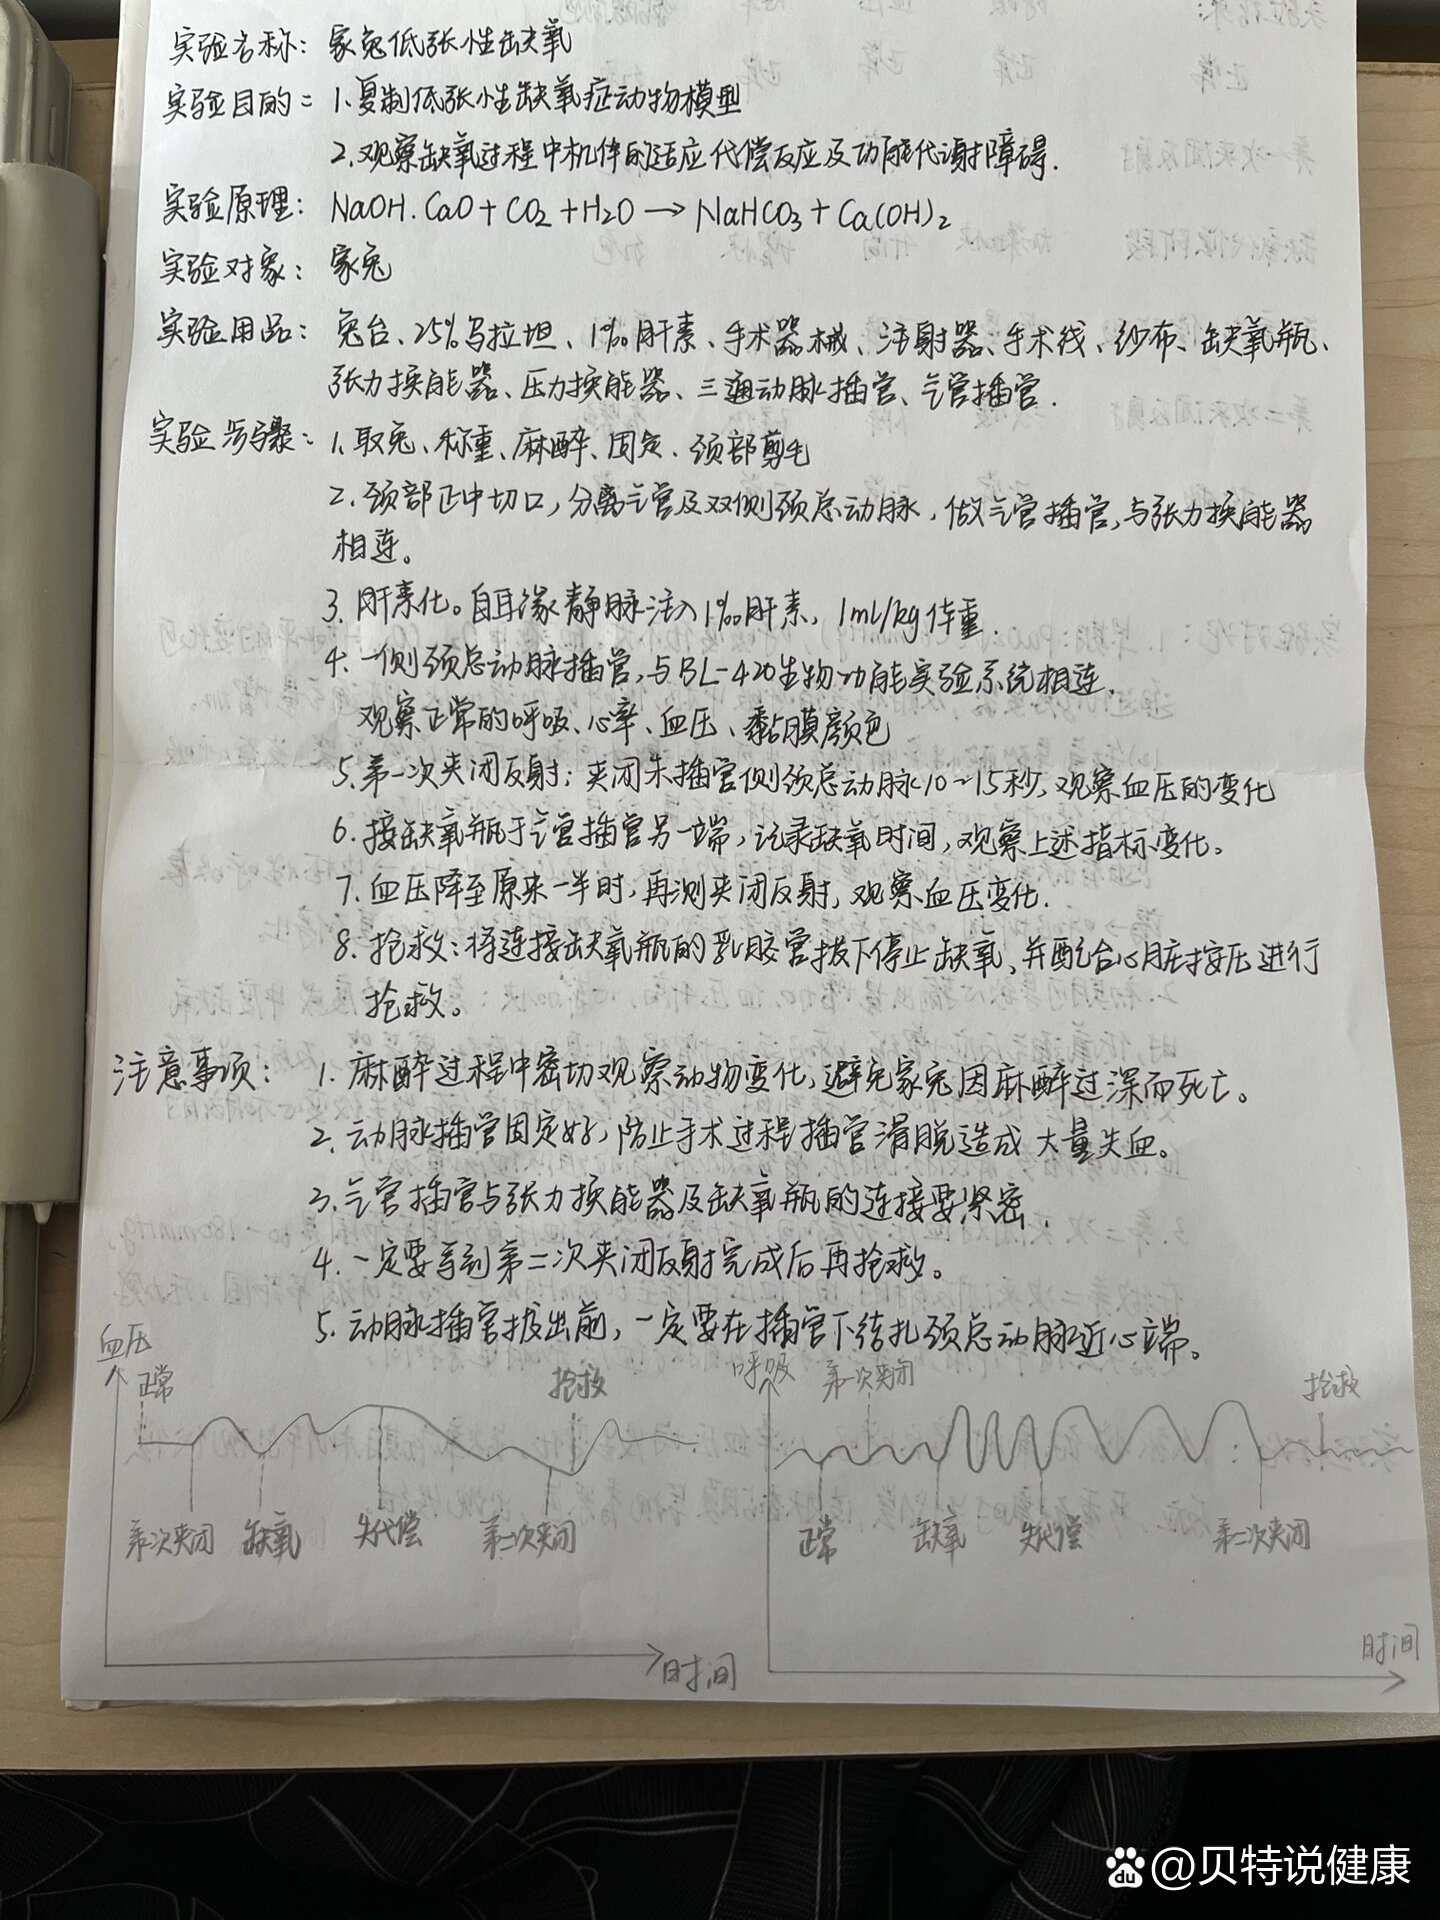 实验名称：家兔低张性缺氧
实验目的：1.复制低张性缺氧症动物模型
2.观察缺氧过程中机体的适应代偿反应及功能代谢障碍.
实验原理：NaOH.CaO+CO2+H2O→NaHCO3+Ca(OH)2
实验对象：家兔
实验用品：兔台、25%乌拉坦、1‰肝素、手术器械、注射器、手术线、纱布、缺氧瓶、
张力换能器、压力换能器、三通动脉插管、气管插管.
实验步骤：1.取兔、称重、麻醉、固定.颈部剪毛
2.颈部正中切口，分离气管及双侧颈总动脉，做气管插管，与张力换能器
相连。
3.肝素化。自耳缘静脉注入1‰肝素，1mL/kg体重.
4.一侧颈总动脉插管，与BL-420生物功能实验系统相连.
观察正常的呼吸、心率、血压、黏膜颜色
5.第一次夹闭反射：夹闭未插管侧颈总动脉10~15秒，观察血压的变化
6.接缺氧瓶于气管插管另一端，记录缺氧时间，观察上述指标变化。
7.血压降至原来一半时，再测夹闭反射，观察血压变化.
8.抢救：将连接缺氧瓶的乳胶管拔下停止缺氧、并配合心脏按压进行
抢救。
注意事项：1.麻醉过程中密切观察动物变化，避免家兔因麻醉过深而死亡。
2.动脉插管固定好，防止手术过程插管滑脱造成大量失血。
3.气管插管与张力换能器及缺氧瓶的连接要紧密.
4.一定要等到第二次夹闭反射完成后再抢救。
5.动脉插管拔出前，一定要在插管下结扎颈总动脉近心端。
血压 正常 抢救
第一次夹闭 缺氧 失代偿 第二次夹闭
时间
呼吸 第一次夹闭 抢救
正常 缺氧 失代偿 第二次夹闭
时间
du @贝特说健康